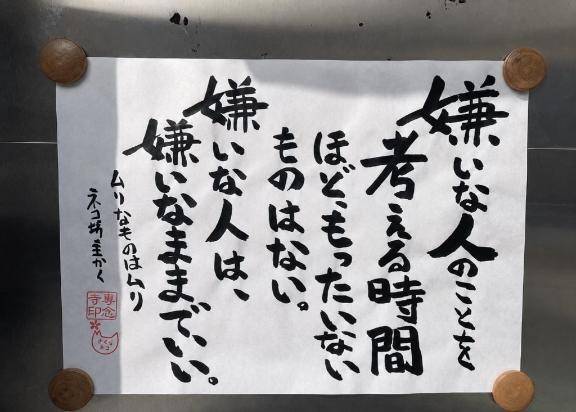 嫌いな人のことを
考える時間
ほど、もったいない
ものはない。
嫌いな人は、
嫌いなままでいい。
ムリなものはムリ
ネコ坊主かく
専念
寺印